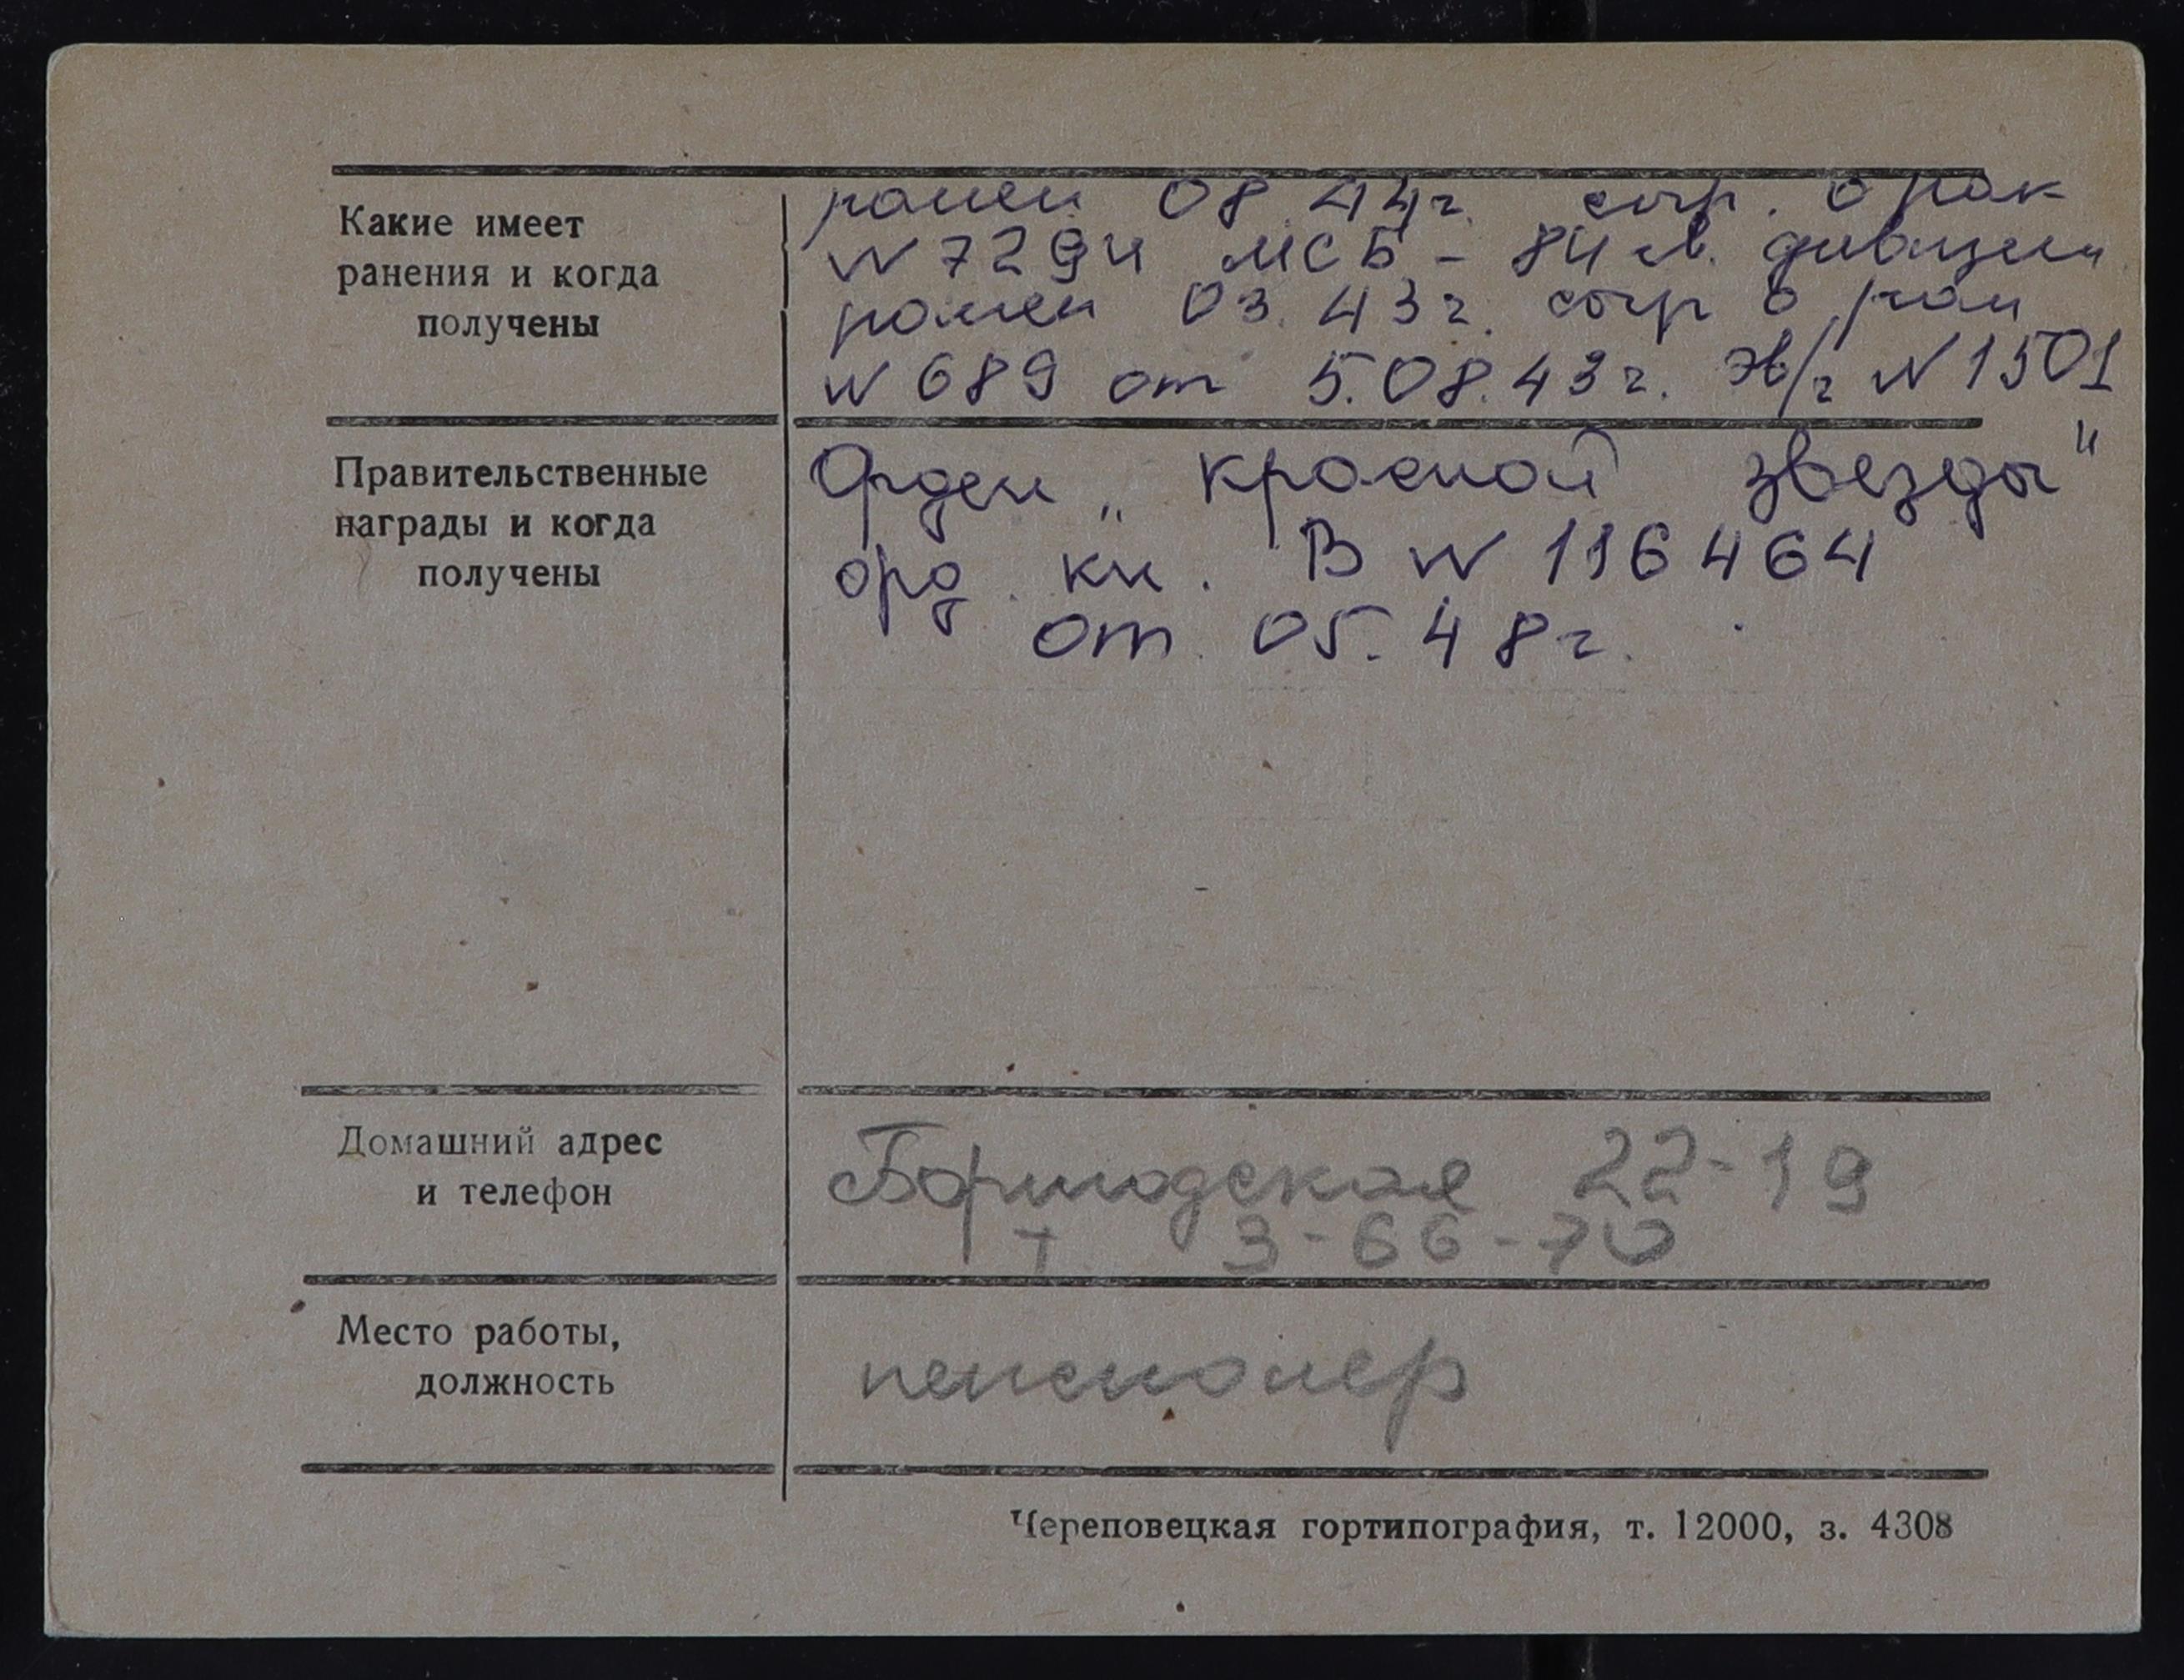 Какие имеет
ранения и когда
получены
ранен 08.44г. спр. о ран
N 7294 МСБ - 84 гв. дивизии
ранен 03.43г. спр о ран
N 689 от 5.08.43г. эв/г N 1501
Правительственные
награды и когда
получены
Орден „Красной звезды"
орд. кн. В N 116464
от 05.48г.
Домашний адрес
и телефон
22-19
т 3-66-70
Место работы,
должность
пенсионер
Череповецкая гортипография, т. 12000, з. 4308